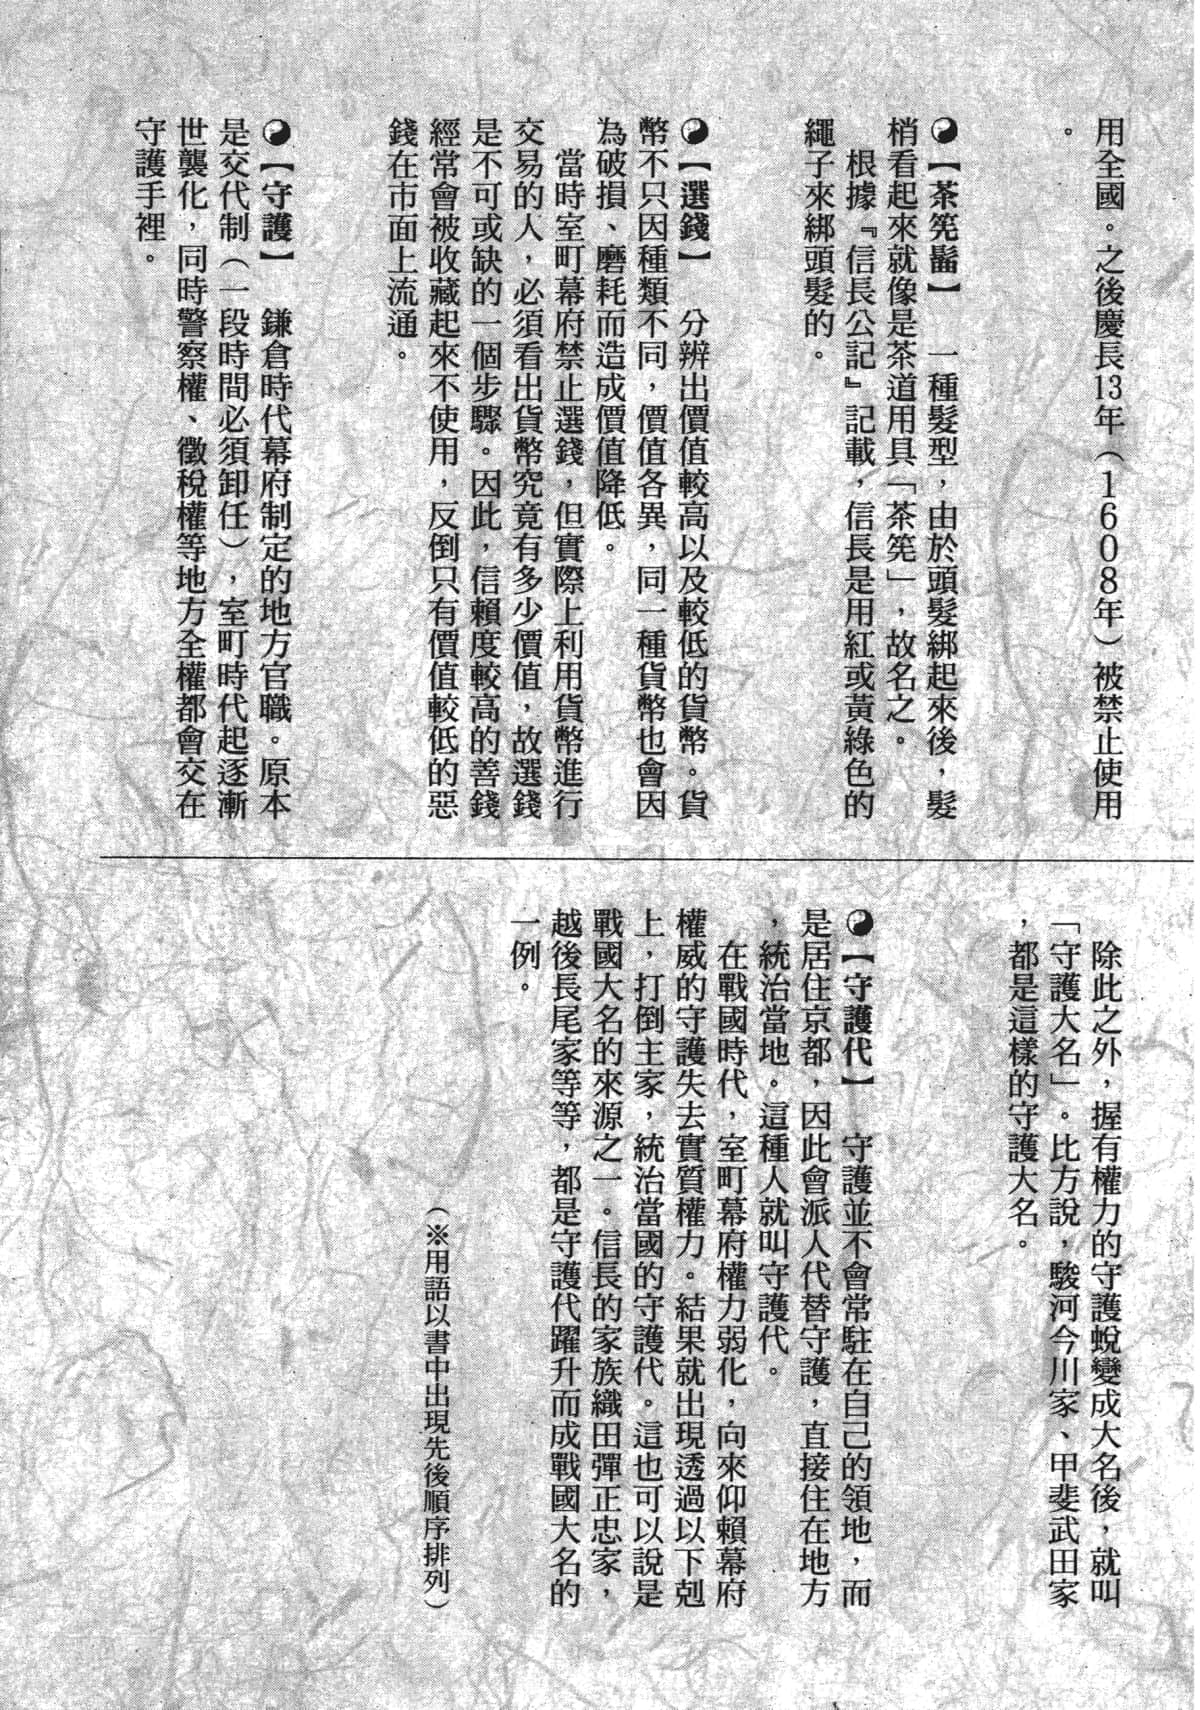 用全國。之後慶長13年(1608年)被禁止使用
。
☯【茶筅髷】 一種髮型,由於頭髮綁起來後,髮
梢看起來就像是茶道用具「茶筅」,故名之。
根據『信長公記』記載,信長是用紅或黃綠色的
繩子來綁頭髮的。
☯【選錢】 分辨出價值較高以及較低的貨幣。貨
幣不只因種類不同,價值各異,同一種貨幣也會因
為破損、磨耗而造成價值降低。
當時室町幕府禁止選錢,但實際上利用貨幣進行
交易的人,必須看出貨幣究竟有多少價值,故選錢
是不可或缺的一個步驟。因此,信賴度較高的善錢
經常會被收藏起來不使用,反倒只有價值較低的惡
錢在市面上流通。
☯【守護】 鎌倉時代幕府制定的地方官職。原本
是交代制(一段時間必須卸任),室町時代起逐漸
世襲化,同時警察權、徵稅權等地方全權都會交在
守護手裡。
除此之外,握有權力的守護蛻變成大名後,就叫
「守護大名」。比方說,駿河今川家、甲斐武田家
,都是這樣的守護大名。
☯【守護代】 守護並不會常駐在自己的領地,而
是居住京都,因此會派人代替守護,直接住在地方
,統治當地。這種人就叫守護代。
在戰國時代,室町幕府權力弱化,向來仰賴幕府
權威的守護失去實質權力。結果就出現透過以下剋
上,打倒主家,統治當國的守護代。這也可以說是
戰國大名的來源之一。信長的家族織田彈正忠家,
越後長尾家等等,都是守護代躍升而成戰國大名的
一例。
(※用語以書中出現先後順序排列)